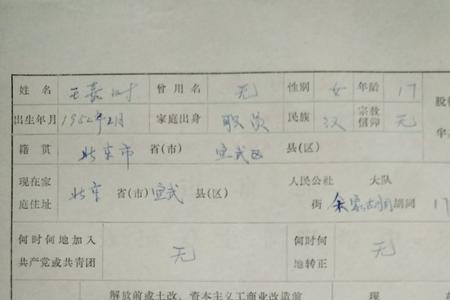 姓名 王嘉时 曾用名 无 性别 女 年龄 17
出生年月 1952年2月 家庭出身 职员 民族 汉 宗教信仰 无
籍贯 北京市 省(市) 宣武区 县(区)
现在家庭住址 北京 省(市) 宣武 县(区) 人民公社 大队 街 余家胡同 胡同 17
何时何地加入共产党或共青团 无 何时何地转正 无
解放前或土改、资本主义工商业改造前 现